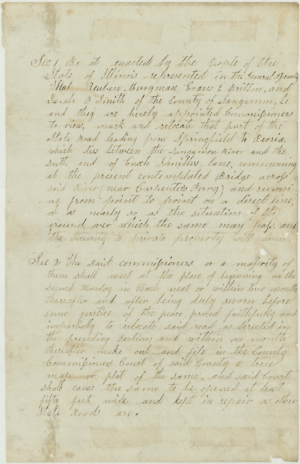 Sec 1 Be it enacted by the People of the
State of Illinois represented in the General Assembly
That Reuben Merryman Evans E Brittin, and
Isaiah D Smith of the County of Sangamon, be
and they are hereby appointed Commissioners
to view, mark and relocate that part of the
State road leading from Springfield to Peoria,
which lies between the Sangamon River and the
south end of Smiths lane, commencing
at the present contemplated Bridge across
said River (near Carpenters Ferry) and running
from point to point on a direct line,
or as nearly so as the situation of the
ground over which the same may pass and
the to private property will
Sec 2 The said commissioners or a majority of
them shall meet at the place of beginning on the
second Monday in March next or within two months
thereafter and after being duly sworn before
some justice of the peace proceed faithfully and
impartially to relocate said road as directed in
the preceding section and within one month
thereafter make out and file in the County
Commissioners Court of said County a
map or plat of the same, and said Court
shall cause the same to be opened at least
fifty feet wide and kept in repair as other
State Roads are.